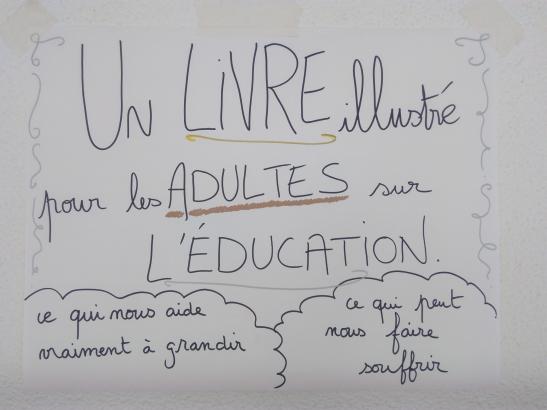 UN LiVRE illustré
pour les ADULTES sur
L'ÉDUCATiON.
ce qui nous aide
vraiment à grandir
ce qui peut
nous faire
souffrir